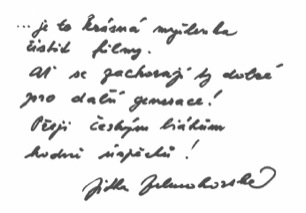 ...je to krásná myšlenka
čistit filmy.
Ať se zachovají ty dobré
pro další generace!
Přeji českým lvákům
hodně úspěchů!
Jitka Zelenohorská